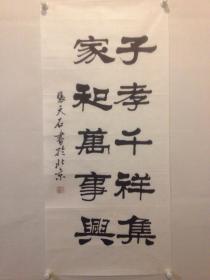 子孝千祥集
家和萬事興
張天石書於北京